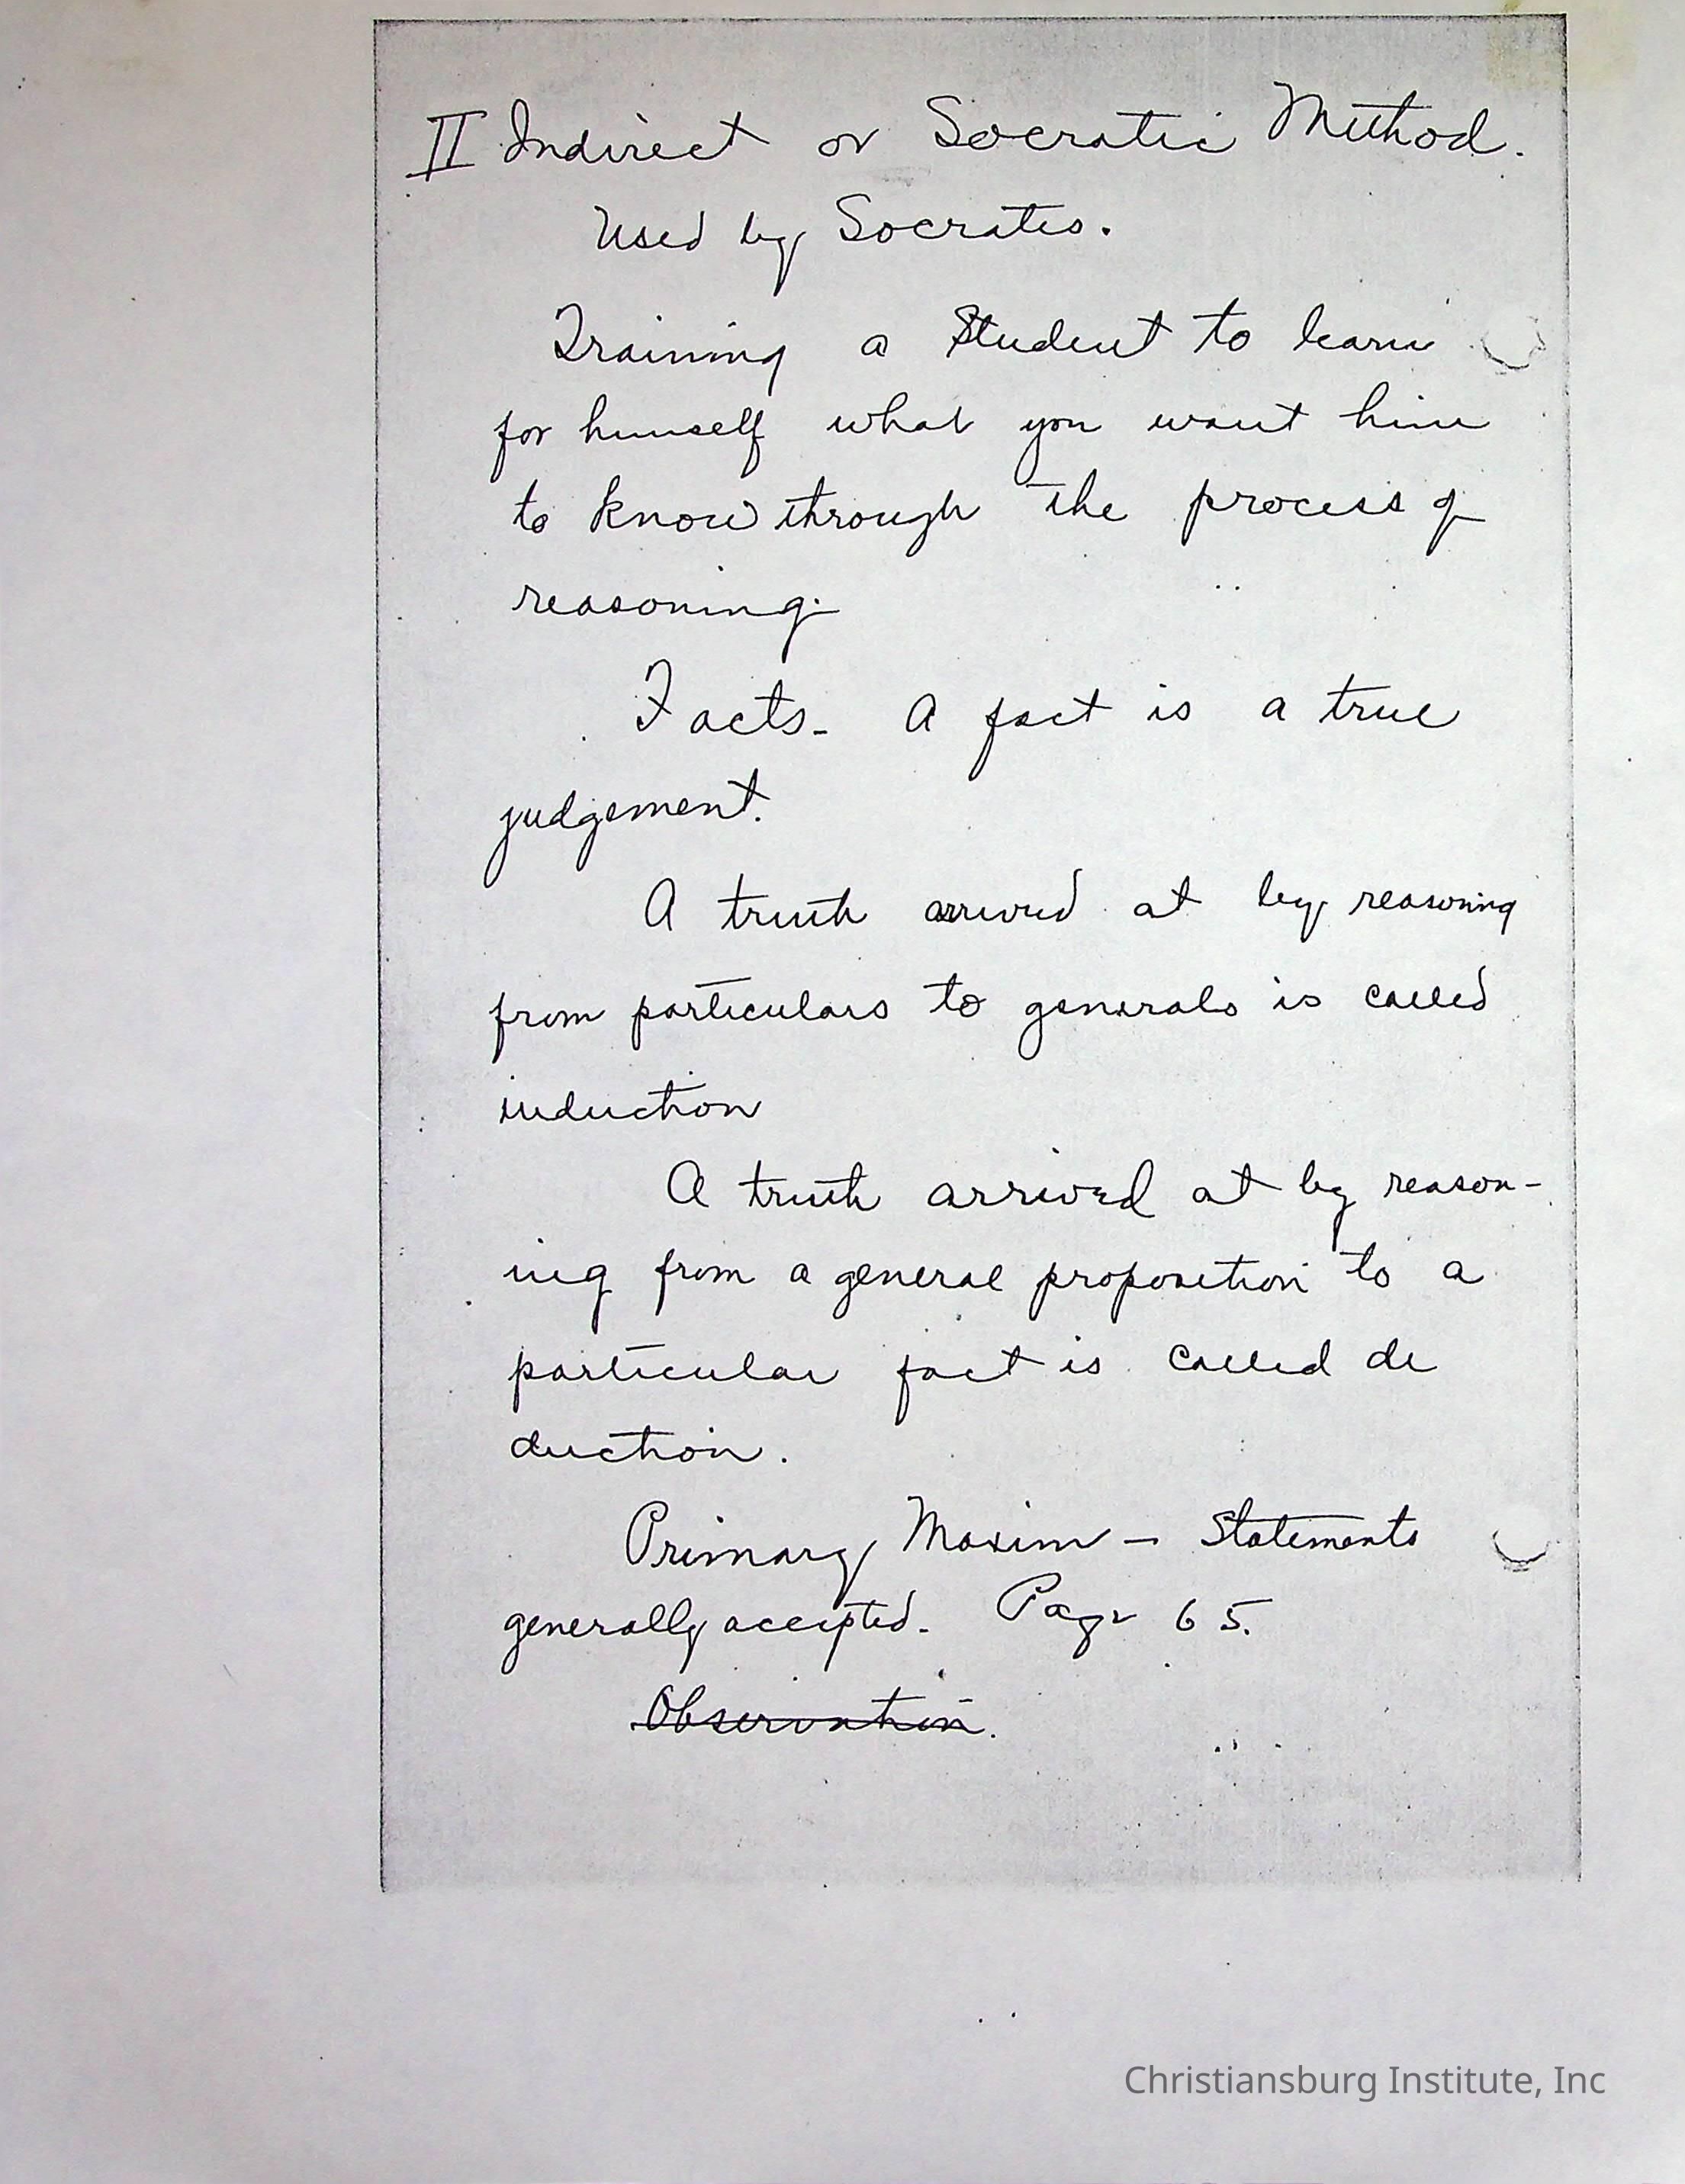 II Indirect or Socratic Method.
Used by Socrates.
Training a Student to learn
for himself what you want him
to know through the process of
reasoning.
Facts - A fact is a true
judgement.
A truth arrived at by reasoning
from particulars to generals is called
induction
A truth arrived at by reason-
ing from a general proposition to a
particular fact is called de
duction.
Primary Maxim - Statements
generally accepted. Page 65.
Observation.
Christiansburg Institute, Inc